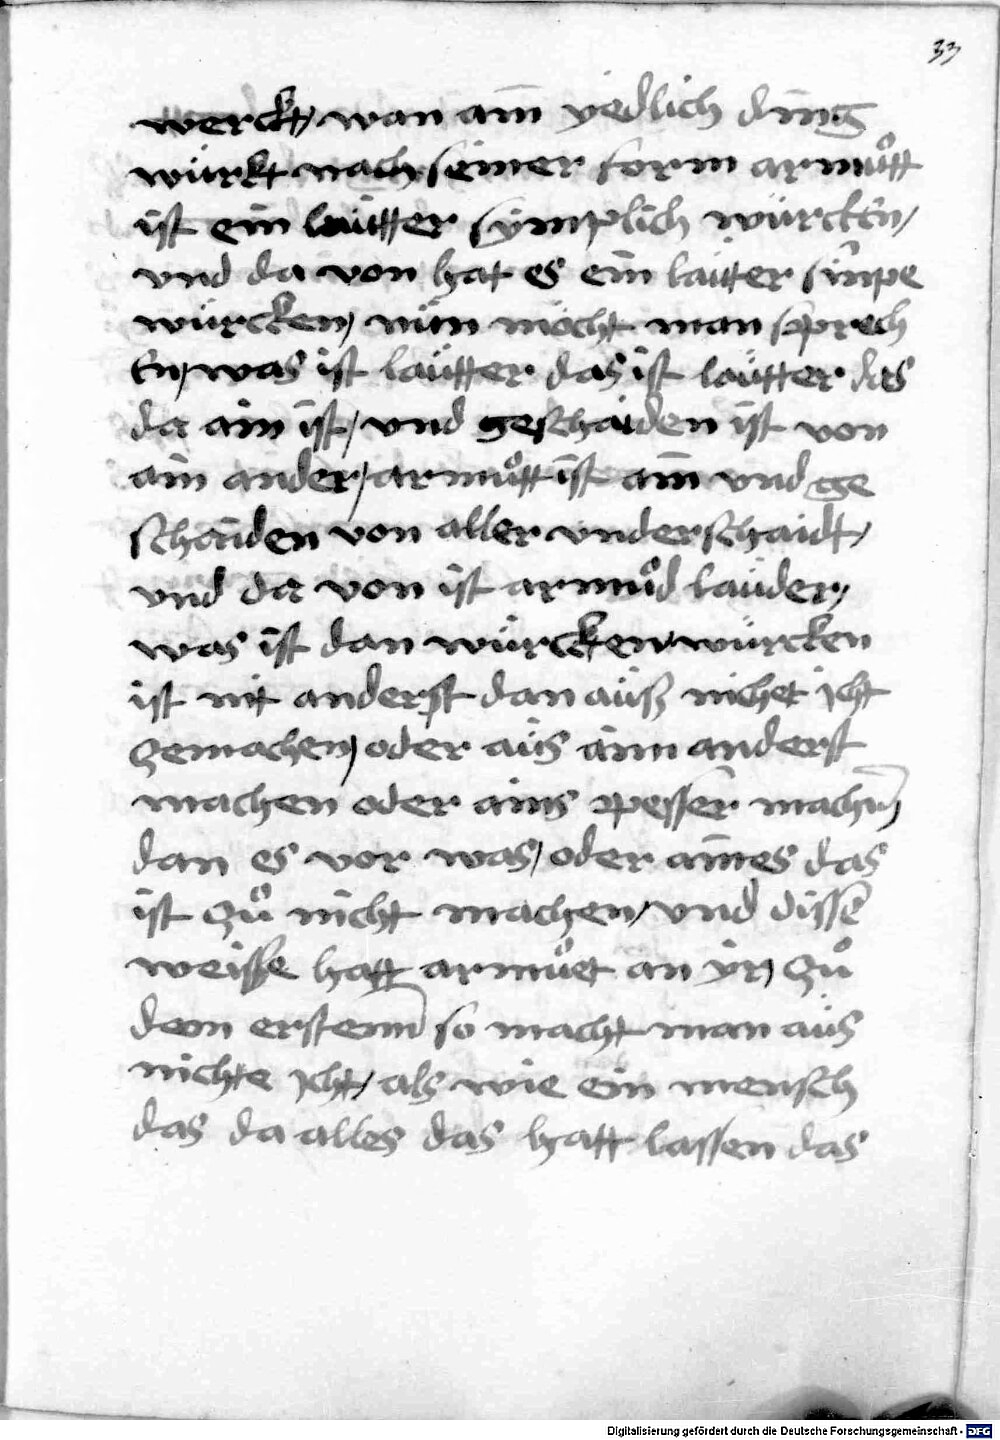 33
werckt / wan ain yedlich ding
würkt nach seiner form armuͦtt
ist ein lautter symplich würcken /
vnd da von hat es ein lauter simpe
würcken / nün möcht man sprech
en / was ist laütter das ist laütter das
da ain ist / vnd geschaiden ist von
ain ander / armuͦtt ist ain vnd ge
schaiden von aller vnderschaidt /
vnd da von ist armuͦd laüder /
was ist dan würcken würcken
ist nit anderst dan aüß nichet icht
zemachen / oder aüs aim anderst
machen oder ains pesser machen
dan es vor was / oder aines das
ist zuͦ nicht machen / vnd disse
weisse hatt armuͦet an yr / zuͦ
dem erstenn so macht man aüs
nichte icht / als wie ein mensch
das da alles das hatt lassen das
Digitalisierung gefördert durch die Deutsche Forschungsgemeinschaft - DFG